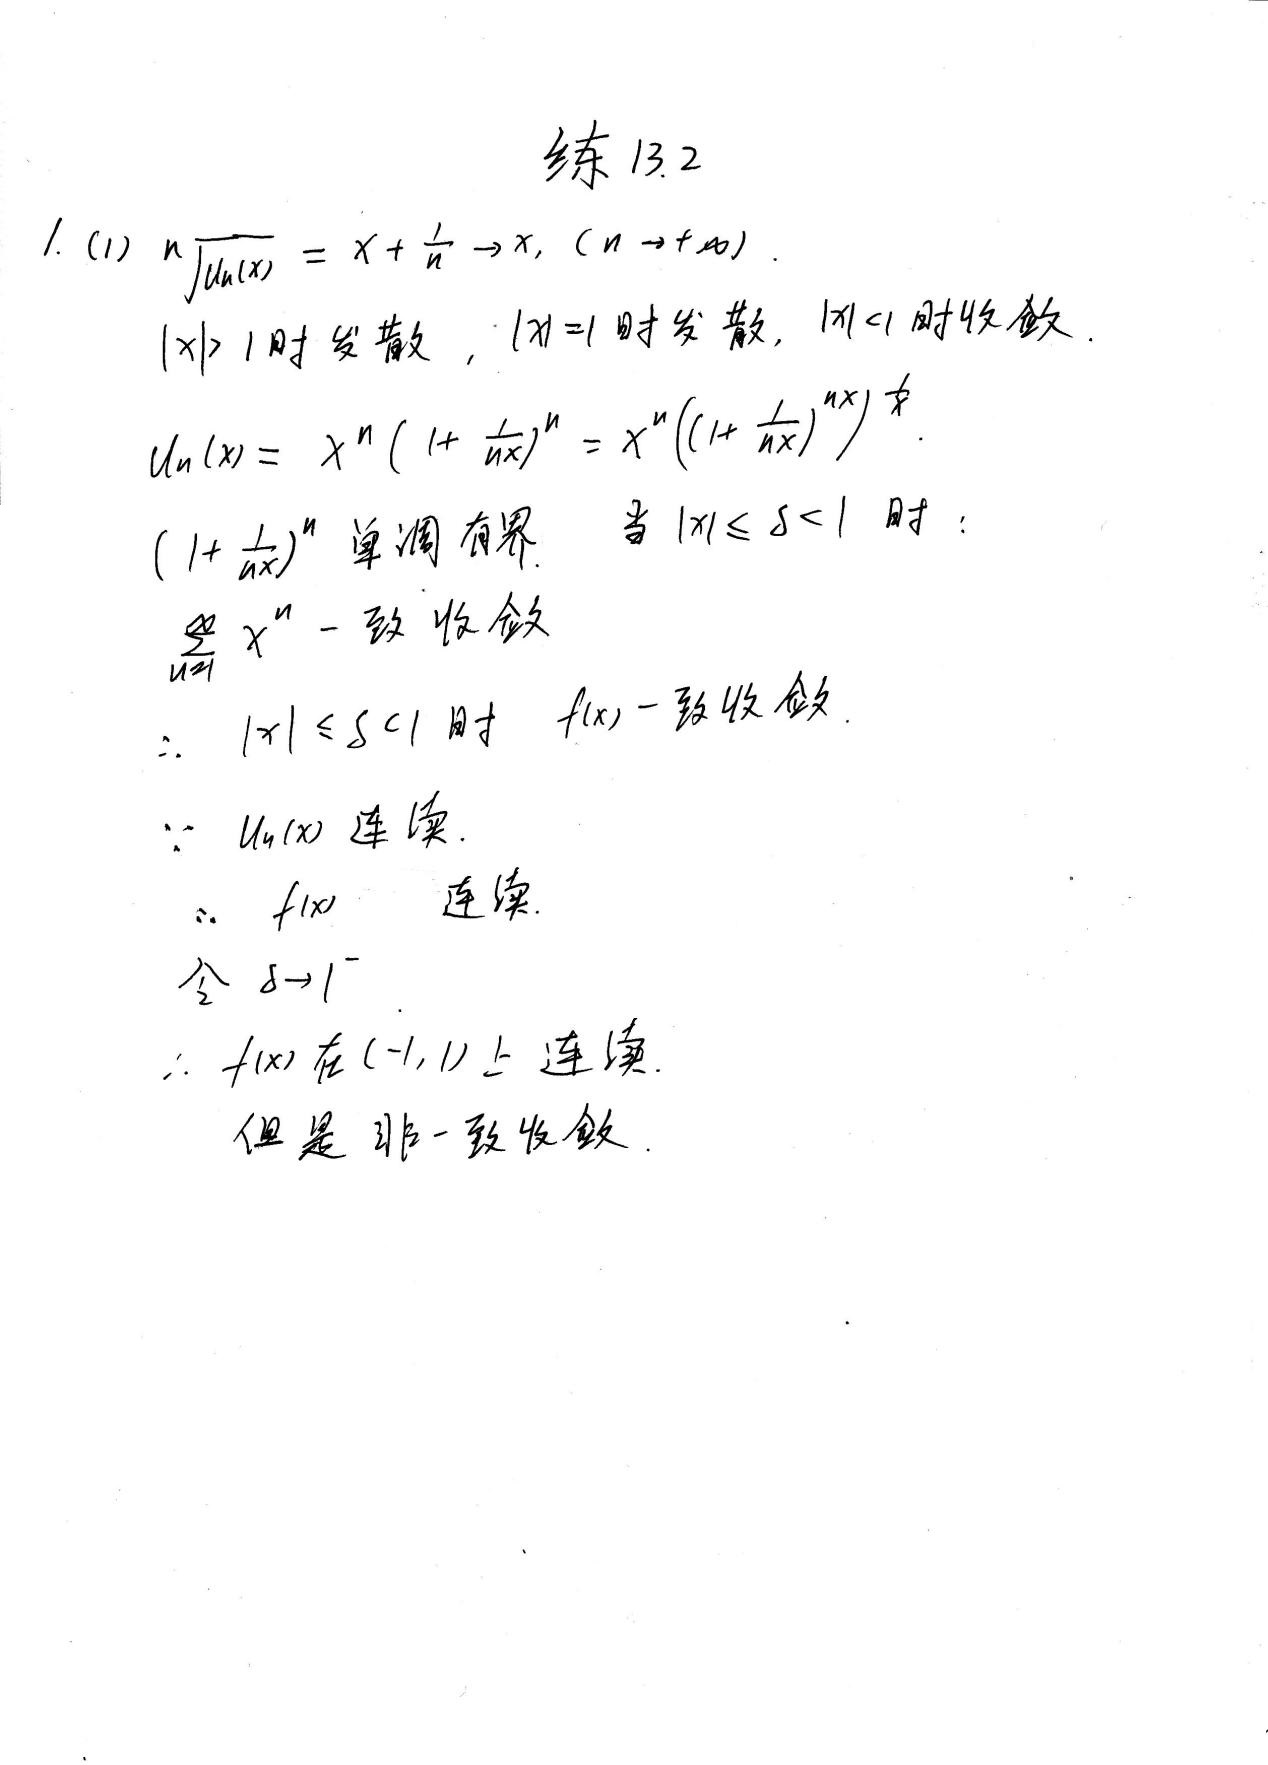 练 13.2
1. (1) n√(Un(x)) = x + 1/n → x, (n → +∞).
|x|>1时发散, |x|=1时发散, |x|<1时收敛.
Un(x) = x^n (1+ 1/nx)^n = x^n ((1+ 1/nx)^nx)^1/x.
(1+ 1/nx)^n 单调有界. 当 |x| ≤ δ < 1 时:
∞Σn=1 x^n 一致收敛
∴ |x| ≤ δ < 1 时 f(x) 一致收敛.
∵ Un(x) 连续.
∴ f(x) 连续.
令 δ→1⁻
∴ f(x) 在 (-1, 1) 上 连续.
但是 非一致收敛.